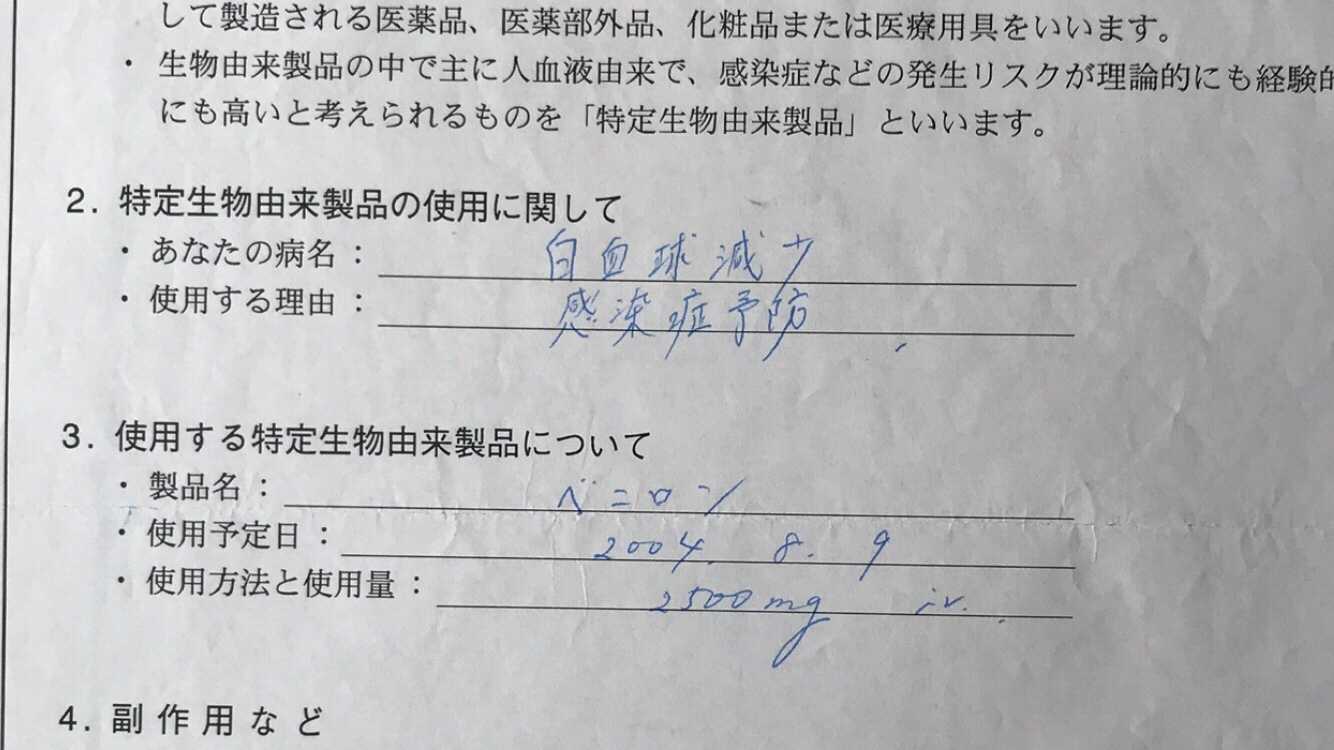 して製造される医薬品、医薬部外品、化粧品または医療用具をいいます。
・ 生物由来製品の中で主に人血液由来で、感染症などの発生リスクが理論的にも経験的
にも高いと考えられるものを「特定生物由来製品」といいます。
2. 特定生物由来製品の使用に関して
・ あなたの病名 : 白血球減少
・ 使用する理由 : 感染症予防
3. 使用する特定生物由来製品について
・ 製品名 : ベニロン
・ 使用予定日 : 2004. 8. 9
・ 使用方法と使用量 : 2500mg iv.
4. 副作用など